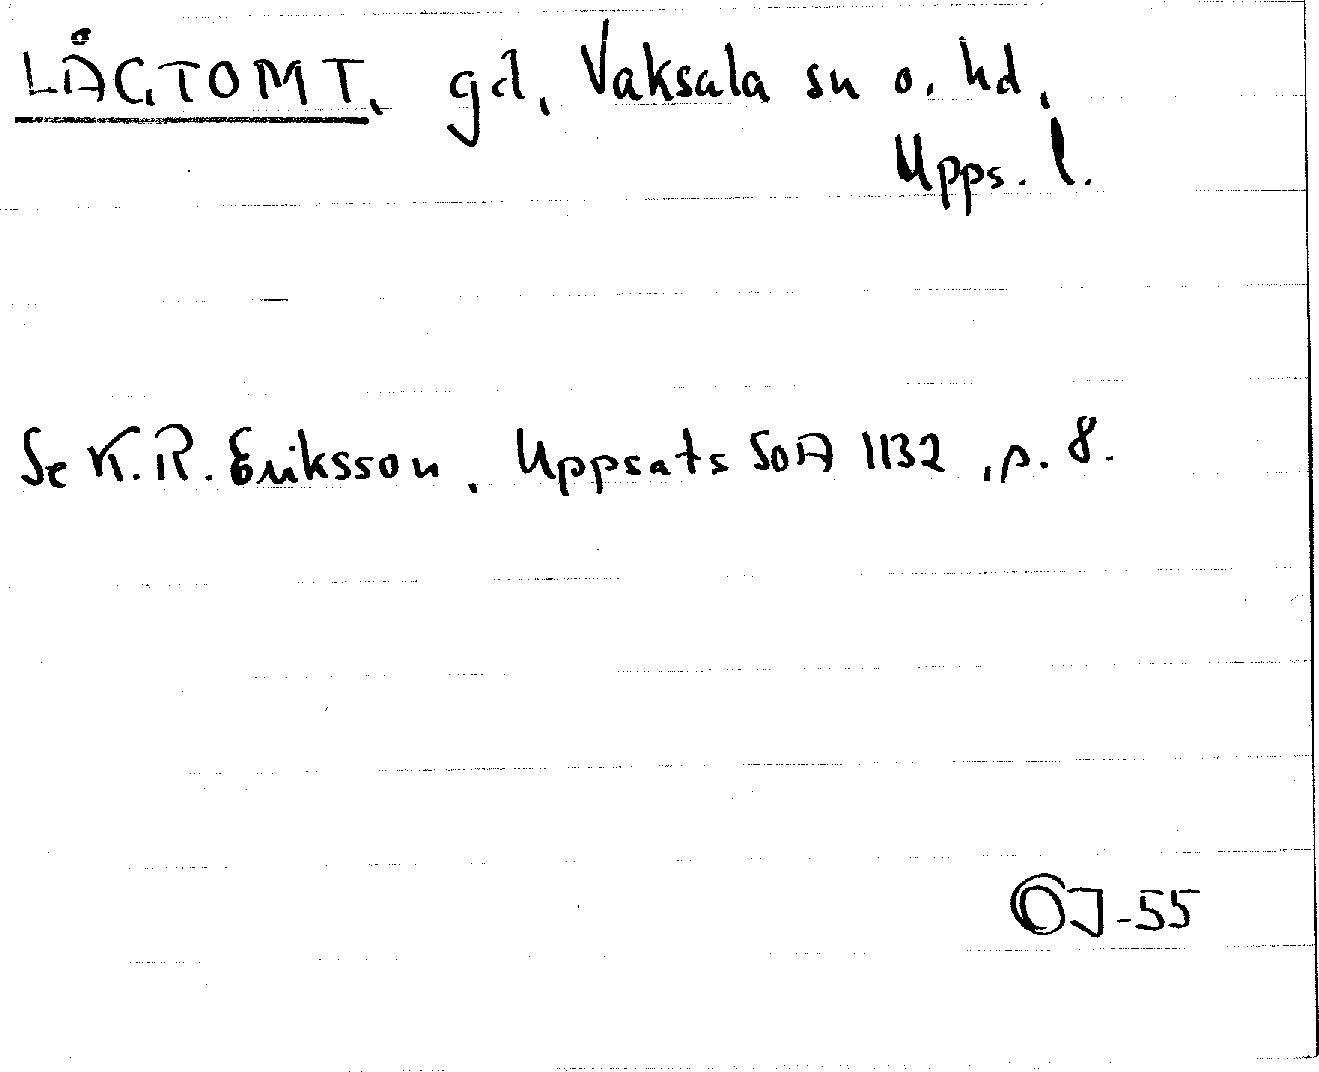 LÅGTOMT, gd, Vaksala sn o. hd,
Upps. l.
Se K.R. Eriksson, Uppsats SOA 1132, p. 8.
OJ-55